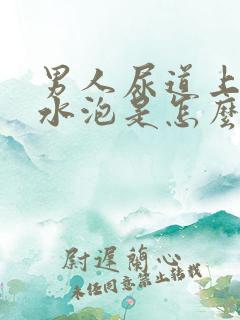 男人尿道上
水泡是怎麼
尉遲蘭心
未经同意禁止转载